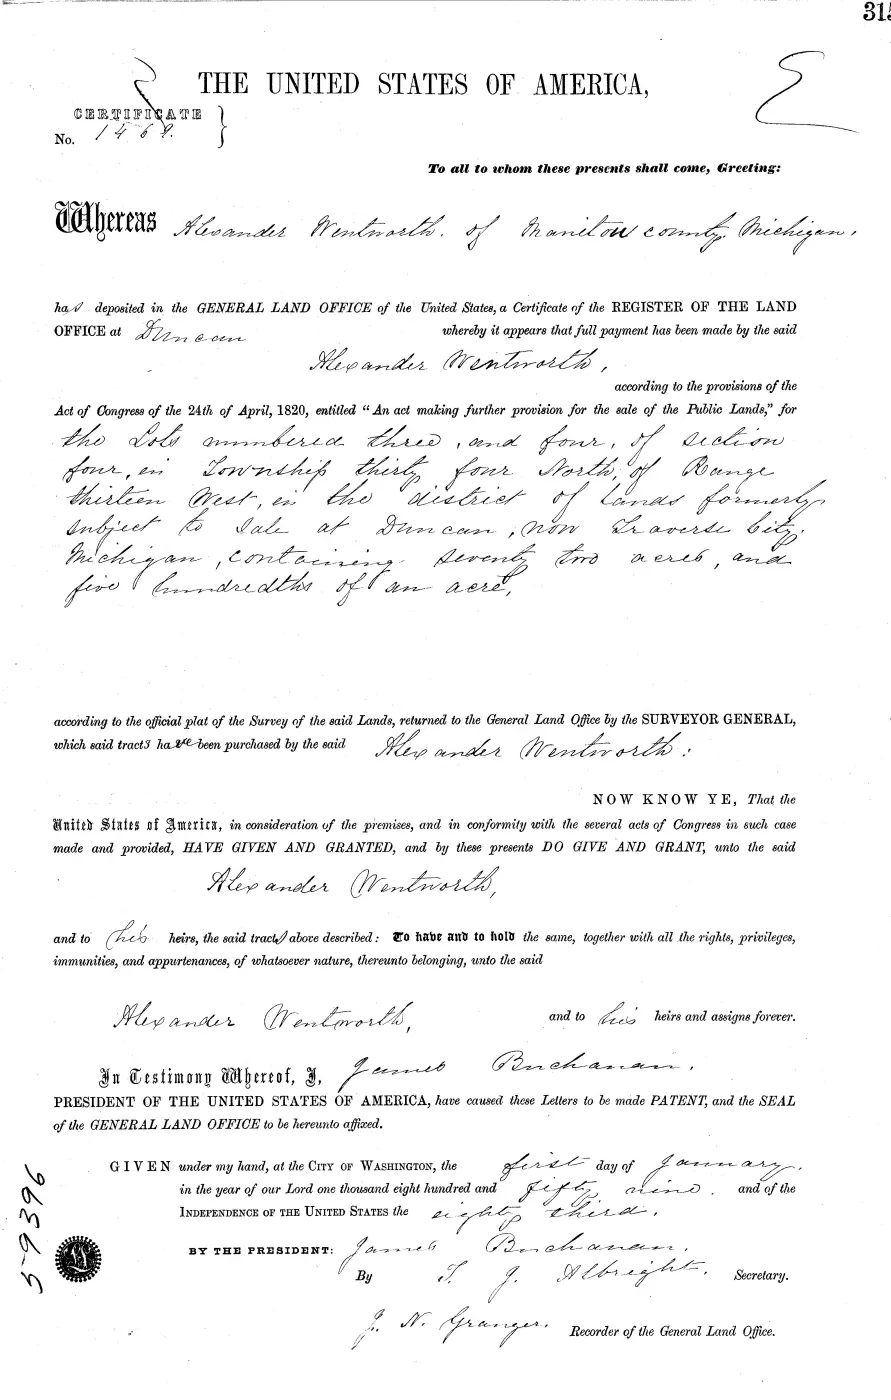 315
THE UNITED STATES OF AMERICA,
CERTIFICATE
No. 1469.
To all to whom these presents shall come, Greeting:
Whereas Alexander Wentworth. of Manitou county. Michigan.
has deposited in the GENERAL LAND OFFICE of the United States, a Certificate of the REGISTER OF THE LAND
OFFICE at Duncan whereby it appears that full payment has been made by the said
Alexander Wentworth,
according to the provisions of the
Act of Congress of the 24th of April, 1820, entitled "An act making further provision for the sale of the Public Lands," for
the Lots numbered three, and four, of section
four, in Township thirty four North, of Range
thirteen West, in the district of lands formerly
subject to sale at Duncan, now Traverse City.
Michigan, containing seventy two acres, and
five hundredths of an acre,
according to the official plat of the Survey of the said Lands, returned to the General Land Office by the SURVEYOR GENERAL,
which said tracts have been purchased by the said Alexander Wentworth:
NOW KNOW YE, That the
United States of America, in consideration of the premises, and in conformity with the several acts of Congress in such case
made and provided, HAVE GIVEN AND GRANTED, and by these presents DO GIVE AND GRANT, unto the said
Alexander Wentworth,
and to his heirs, the said tracts above described: To have and to hold the same, together with all the rights, privileges,
immunities, and appurtenances, of whatsoever nature, thereunto belonging, unto the said
Alexander Wentworth, and to his heirs and assigns forever.
In Testimony Whereof, I, James Buchanan.
PRESIDENT OF THE UNITED STATES OF AMERICA, have caused these Letters to be made PATENT, and the SEAL
of the GENERAL LAND OFFICE to be hereunto affixed.
GIVEN under my hand, at the CITY OF WASHINGTON, the first day of January.
in the year of our Lord one thousand eight hundred and fifty nine. and of the
INDEPENDENCE OF THE UNITED STATES the eighty third.
BY THE PRESIDENT: James Buchanan.
By T. J. Albright. Secretary.
J. N. Granger. Recorder of the General Land Office.
59396